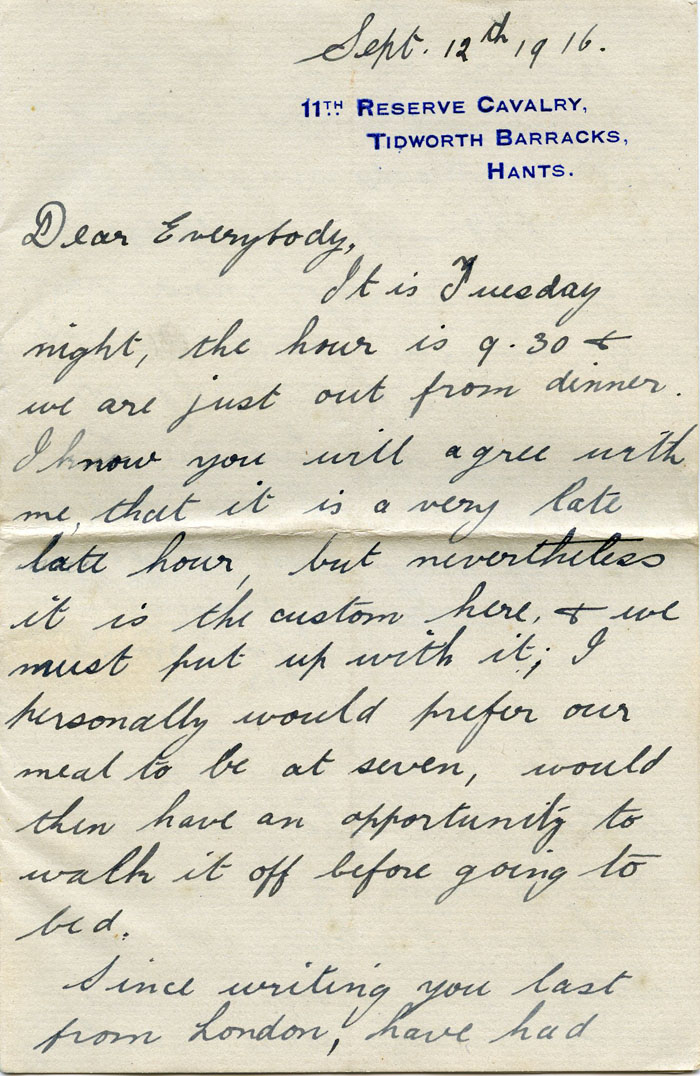 Sept. 12th 1916.
11TH RESERVE CAVALRY,
TIDWORTH BARRACKS,
HANTS.
Dear Everybody,
It is Tuesday
night, the hour is 9.30 &
we are just out from dinner.
I know you will agree with
me, that it is a very late
late hour, but nevertheless
it is the custom here, & we
must put up with it; I
personally would prefer our
meal to be at seven, would
then have an opportunity to
walk it off before going to
bed.
Since writing you last
from London, have had